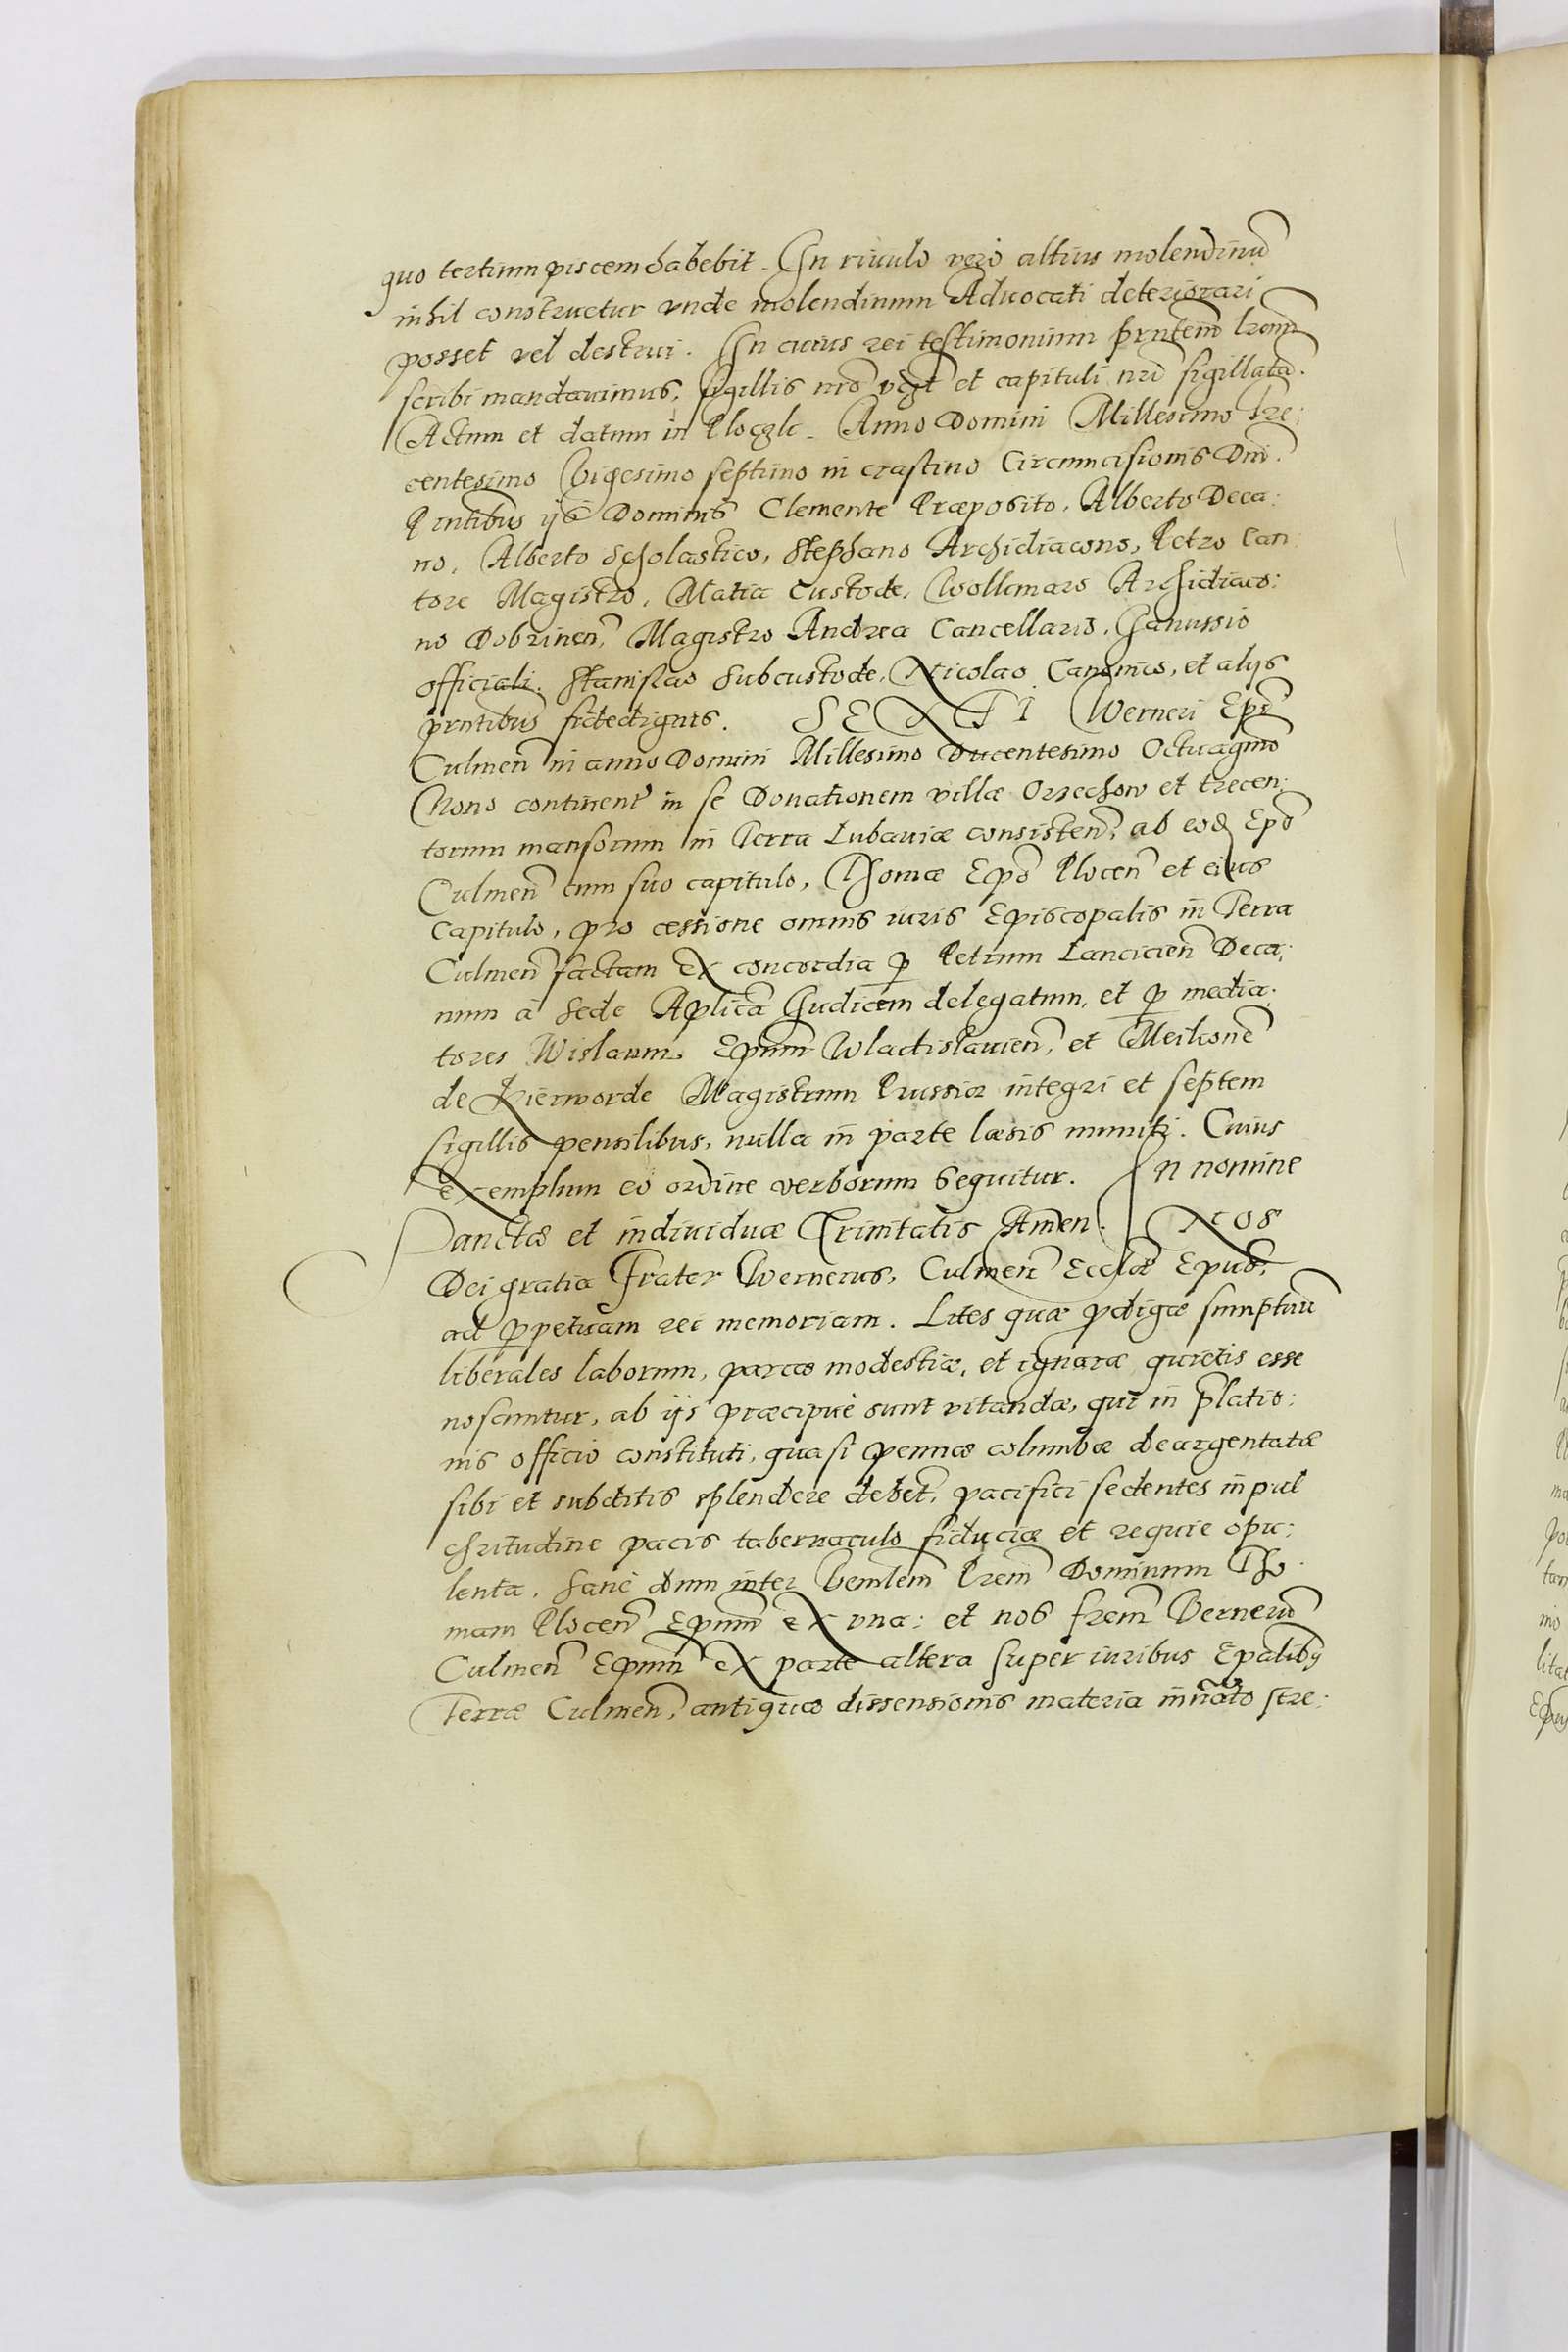 quo tertium piscem habebit. In riuulo vero altius molendinū
nihil construetur vnde molendinum Aduocati deteriorari
posset vel destrui. In cuius rei testimonium pr̄ntem̄ lrām̄
scribi mandauimus, sigillis nr̄o et capituli nr̄i sigillatā.
Actum et datum in Ploczk. Anno Domini Millesimo Tre:
centesimo Vigesimo septimo in crastino Circumcisionis Dn̄i.
Pr̄ntibus ijs Dominis Clemente Præposito, Alberto Deca:
no, Alberto Scholastico, Stephano Archidiacono, Petro Can:
tore Magistro, Matia Custode, Wollemaro Archidiaco:
no Dobrinen̄, Magistro Andrea Cancellario, Hanussio
officiali. Stanislao Subcustode, Nicolao Canonico, et alijs
prn̄tibus fidedignis. SEXTI Werneri Epī
Culmen̄ in anno Domini Millesimo Ducentesimo Octuagm̄o
Nono continent̄ in se Donationem villæ Orzechow et trecen:
torum mansorum in Terra Lubauiæ consisten̄, ab eod Epō
Culmen̄ cum suo capitulo, Thomæ Epō Plocen̄ et eius
Capitulo, pro cessione omnis iuris Episcopalis in Terra
Culmen̄ factam ex concordia p̱ Petrum Lancicien̄ Deca:
num à Sede Aplicā Iudicem delegatum, et p̱ media:
tores Wislaum Epūm Wladislauien̄, et Meikonē
de Kierworde Magistrum Prussiæ integri et septem
sigillis pensilibus, nulla in parte læsis muniti. Cuius
exemplum eo ordine verborum sequitur. In nomine
Sanctæ et indiuiduæ Trinitatis Amen. Nos
Dei gratia Frater Wernerus, Culmen̄ Ecclǣ Epūs,
ad p̱petuam rei memoriam. Lites quæ p̱digæ sumptuū
liberales laborum, parcæ modestiæ, et ignaræ quietis esse
noscuntur, ab ijs præcipuè sunt vitandæ, qui in p̄latio:
nis officio constituti, quasi pennæ columbæ deargentatæ
sibi et subditis splendere debēt, pacifici sedentes in pul
chritudine pacis tabernaculo fiduciæ et requie opu:
lenta. Sanè dum inter Venlem̄ Prem̄ Dominum Tho:
mam Plocen̄ Epūm ex vna: et nos frem̄ Vernerū
Culmen̄ Epūm ex parte altera super iuribus Epalibꝰ
Terræ Culmen̄, antiquæ dissensionis materia stre: